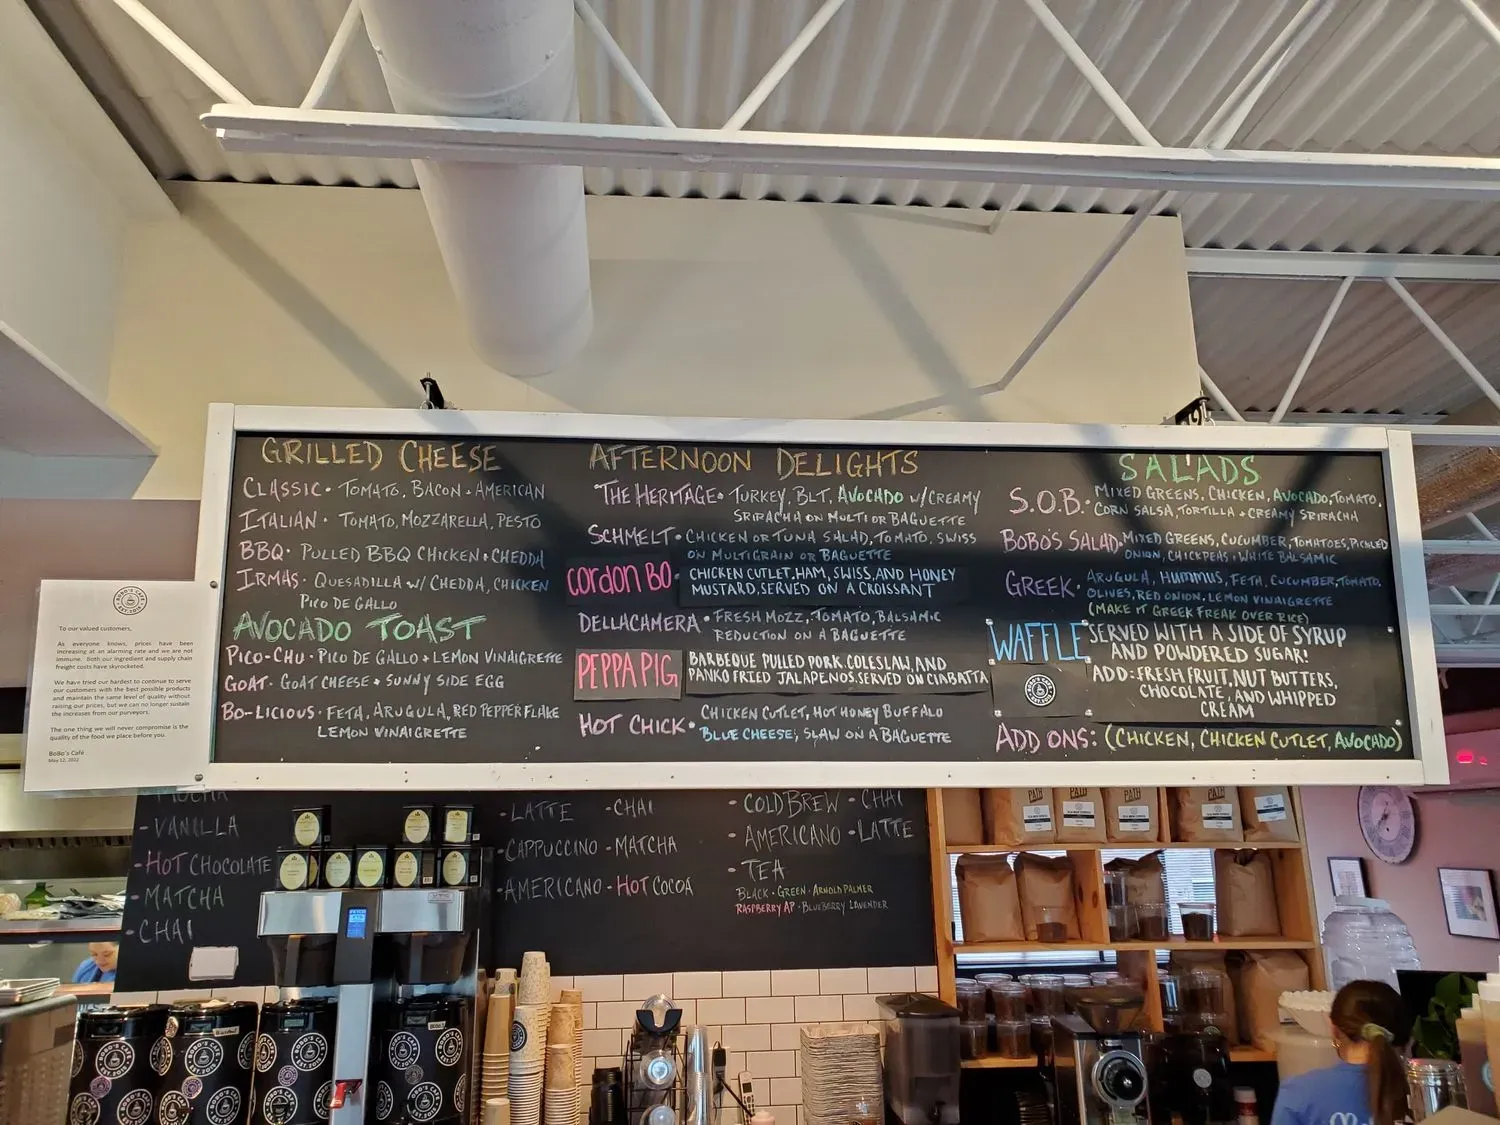 GRILLED CHEESE
CLASSIC • TOMATO, BACON + AMERICAN
ITALIAN • TOMATO, MOZZARELLA, PESTO
BBQ • PULLED BBQ CHICKEN + CHEDDA
IRMAS • QUESADILLA W/ CHEDDA, CHICKEN
PICO DE GALLO
AVOCADO TOAST
PICO-CHU • PICO DE GALLO + LEMON VINAIGRETTE
GOAT • GOAT CHEESE + SUNNY SIDE EGG
BO-LICIOUS • FETA, ARUGULA, RED PEPPER FLAKE
LEMON VINAIGRETTE
AFTERNOON DELIGHTS
THE HERITAGE • TURKEY, BLT, AVOCADO W/ CREAMY
SRIRACHA ON MULTI OR BAGUETTE
SCHMELT • CHICKEN OR TUNA SALAD, TOMATO, SWISS
ON MULTIGRAIN OR BAGUETTE
CORDON BO • CHICKEN CUTLET, HAM, SWISS, AND HONEY
MUSTARD, SERVED ON A CROISSANT
DELLACAMERA • FRESH MOZZ, TOMATO, BALSAMIC
REDUCTION ON A BAGUETTE
PEPPA PIG BARBEQUE PULLED PORK, COLESLAW, AND
PANKO FRIED JALAPENOS. SERVED ON CIABATTA
HOT CHICK • CHICKEN CUTLET, HOT HONEY BUFFALO
BLUE CHEESE, SLAW ON A BAGUETTE
SALADS
S.O.B. • MIXED GREENS, CHICKEN, AVOCADO, TOMATO,
CORN SALSA, TORTILLA + CREAMY SRIRACHA
BOBO'S SALAD • MIXED GREENS, CUCUMBER, TOMATOES, PICKLED
ONION, CHICKPEAS + WHITE BALSAMIC
GREEK • ARUGULA, HUMMUS, FETA, CUCUMBER, TOMATO,
OLIVES, RED ONION, LEMON VINAIGRETTE
(MAKE IT GREEK FREAK OVER RICE)
WAFFLE SERVED WITH A SIDE OF SYRUP
AND POWDERED SUGAR!
ADD: FRESH FRUIT, NUT BUTTERS,
CHOCOLATE, AND WHIPPED
CREAM
ADD ONS: (CHICKEN, CHICKEN CUTLET, AVOCADO)
To our valued customers,
As everyone knows, prices have been
increasing at an alarming rate and we are not
immune. Both our ingredient and supply chain
freight costs have skyrocketed.
We have tried our hardest to continue to serve
our customers with the best possible products
and maintain the same level of quality without
raising our prices, but we can no longer sustain
the increases from our purveyors.
The one thing we will never compromise is the
quality of the food we place before you.
BoBo's Café
May 12, 2022
MOCHA
- VANILLA
- HOT CHOCOLATE
- MATCHA
- CHAI
- LATTE - CHAI
- CAPPUCCINO - MATCHA
- AMERICANO - HOT COCOA
- COLD BREW - CHAI
- AMERICANO - LATTE
- TEA
BLACK • GREEN • ARNOLD PALMER
RASPBERRY AP • BLUEBERRY LAVENDER
PATH
PATH
PATH
BOBO'S CAFE
EST. 2015